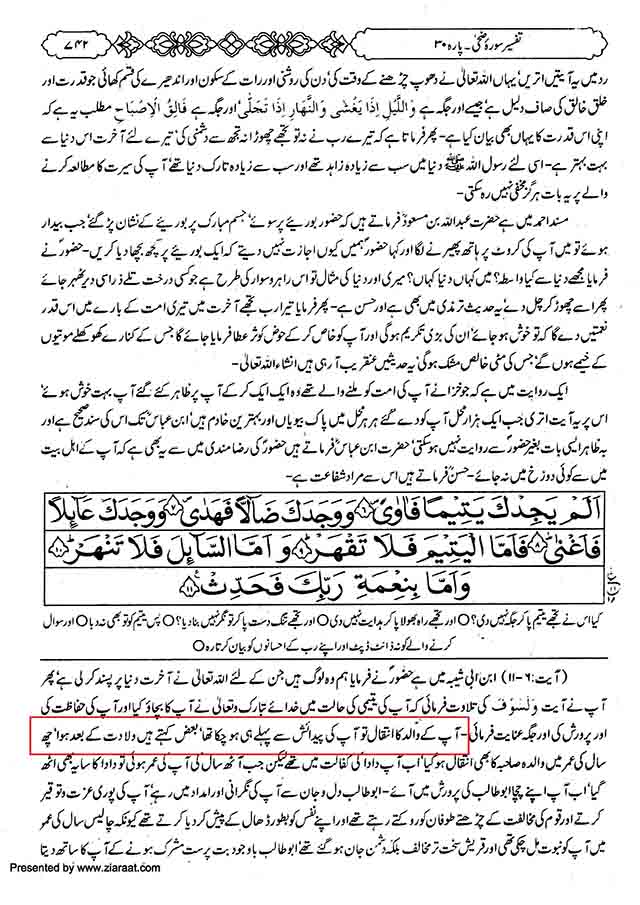 تفسیر سورۂ ضحیٰ۔ پارہ ۳۰
۷۴۲
رد میں یہ آیتیں اتریں‘ یہاں اللہ تعالیٰ نے دھوپ چڑھنے کے وقت کی‘ دن کی روشنی اور رات کے سکون اور اندھیرے کی قسم کھائی جو قدرت اور
خلق خالق کی صاف دلیل ہے‘ جیسے اور جگہ ہے وَاللَّيْلِ اِذَا يَغْشٰى وَالنَّهَارِ اِذَا تَجَلّٰى‘ اور جگہ ہے فَالِقُ الْاِصْبَاحِ مطلب یہ ہے کہ
اپنی اس قدرت کا یہاں بھی بیان کیا ہے۔ پھر فرماتا ہے کہ تیرے رب نے نہ تو تجھے چھوڑا نہ تجھ سے دشمنی کی‘ تیرے لئے آخرت اس دنیا سے
بہت بہتر ہے۔ اسی لئے رسول اللہ ﷺ دنیا میں سب سے زیادہ زاہد تھے اور سب سے زیادہ تارک دنیا تھے‘ آپ کی سیرت کا مطالعہ کرنے
والے پر یہ بات ہرگز مخفی نہیں رہ سکتی۔
مسند احمد میں ہے حضرت عبداللہ بن مسعودؓ فرماتے ہیں کہ حضور بوریئے پر سوئے‘ جسم مبارک پر بوریئے کے نشان پڑ گئے‘ جب بیدار
ہوئے تو میں آپ کی کروٹ پر ہاتھ پھیرنے لگا اور کہا حضورؐ ہمیں کیوں اجازت نہیں دیتے کہ ایک بوریئے پر کچھ بچھا دیا کریں۔ حضورؐ نے
فرمایا مجھے دنیا سے کیا واسطہ؟ میں کہاں دنیا کہاں؟ میری اور دنیا کی مثال تو اس راہرو سوار کی طرح ہے جو کسی درخت تلے ذرا سی دیر ٹھہر جائے
پھر اسے چھوڑ کر چل دے‘ یہ حدیث ترمذی میں بھی ہے اور حسن ہے۔ پھر فرمایا تیرا رب تجھے آخرت میں تیری امت کے بارے میں اس قدر
نعمتیں دے گا کہ تو خوش ہو جائے‘ ان کی بڑی تکریم ہوگی اور آپ کو خاص کر کے حوض کوثر عطا فرمایا جائے گا جس کے کنارے کھوکھلے موتیوں
کے خیمے ہوں گے‘ جس کی مٹی خالص مشک ہوگی‘ یہ حدیثیں عنقریب آ رہی ہیں انشاء اللہ تعالیٰ۔
ایک روایت میں ہے کہ جو خزانے آپ کی امت کو ملنے والے تھے وہ ایک ایک کر کے آپ پر ظاہر کئے گئے آپ بہت خوش ہوئے‘
اس پر یہ آیت اتری‘ جب ایک ہزار محل آپ کو دیئے گئے ہر ہر محل میں پاک بیویاں اور بہترین خادم ہیں‘ ابن عباسؓ تک اس کی سند صحیح ہے اور
بہ ظاہر ایسی بات بغیر حضورؐ سے روایت نہیں ہو سکتی‘ حضرت ابن عباسؓ فرماتے ہیں حضورؐ کی رضا مندی میں سے یہ بھی ہے کہ آپ کے اہل بیت
میں سے کوئی دوزخ میں نہ جائے۔ حسنؒ فرماتے ہیں اس سے مراد شفاعت ہے۔
اَلَمْ يَجِدْكَ يَتِيْمًا فَاٰوٰى ۶ وَوَجَدَكَ ضَآلًّا فَهَدٰى ۷ وَوَجَدَكَ عَآئِلًا
فَاَغْنٰى ۸ فَاَمَّا الْيَتِيْمَ فَلَا تَقْهَرْ ۹ وَاَمَّا السَّآئِلَ فَلَا تَنْهَرْ ۱۰
وَاَمَّا بِنِعْمَةِ رَبِّكَ فَحَدِّثْ ۱۱
کیا اس نے تجھے یتیم پا کر جگہ نہیں دی؟ O اور تجھے راہ بھولا پا کر ہدایت نہیں دی O اور تجھے تنگ دست پا کر تونگر نہیں بنا دیا؟ O پس یتیم کو تو بھی نہ دبا O اور سوال
کرنے والے کو نہ ڈانٹ ڈپٹ O اور اپنے رب کے احسانوں کو بیان کرتا رہ O
(آیت: ۶-۱۱) ابن ابی شیبہ میں ہے حضورؐ نے فرمایا ہم وہ لوگ ہیں جن کے لئے اللہ تعالیٰ نے آخرت دنیا پر پسند کر لی ہے‘ پھر
آپ نے آیت وَلَسَوْفَ کی تلاوت فرمائی کہ آپ کی یتیمی کی حالت میں خدائے تبارک وتعالیٰ نے آپ کا بچاؤ کیا اور آپ کی حفاظت کی
اور پرورش کی اور جگہ عنایت فرمائی۔ آپ کے والد کا انتقال تو آپ کی پیدائش سے پہلے ہی ہو چکا تھا‘ بعض کہتے ہیں ولادت کے بعد ہوا‘ چھ
سال کی عمر میں والدہ صاحبہ کا بھی انتقال ہو گیا‘ اب آپ دادا کی کفالت میں تھے لیکن جب آٹھ سال کی آپ کی عمر ہوئی تو دادا کا سایہ بھی اٹھ
گیا‘ اب آپ اپنے چچا ابو طالب کی پرورش میں آئے۔ ابوطالب دل و جان سے آپ کی نگرانی اور امداد میں رہے‘ آپ کی پوری عزت وتوقیر
کرتے اور قوم کی مخالفت کے چڑھتے طوفان کو روکتے رہتے تھے اور اپنے نفس کو بطور ڈھال کے پیش کر دیا کرتے تھے کیونکہ چالیس سال کی عمر
میں آپ کو نبوت مل چکی تھی اور قریش سخت تر مخالف بلکہ دشمن جان ہو گئے تھے‘ ابوطالب باوجود بت پرست مشرک ہونے کے آپ کا ساتھ دیتا
Presented by www.ziaraat.com